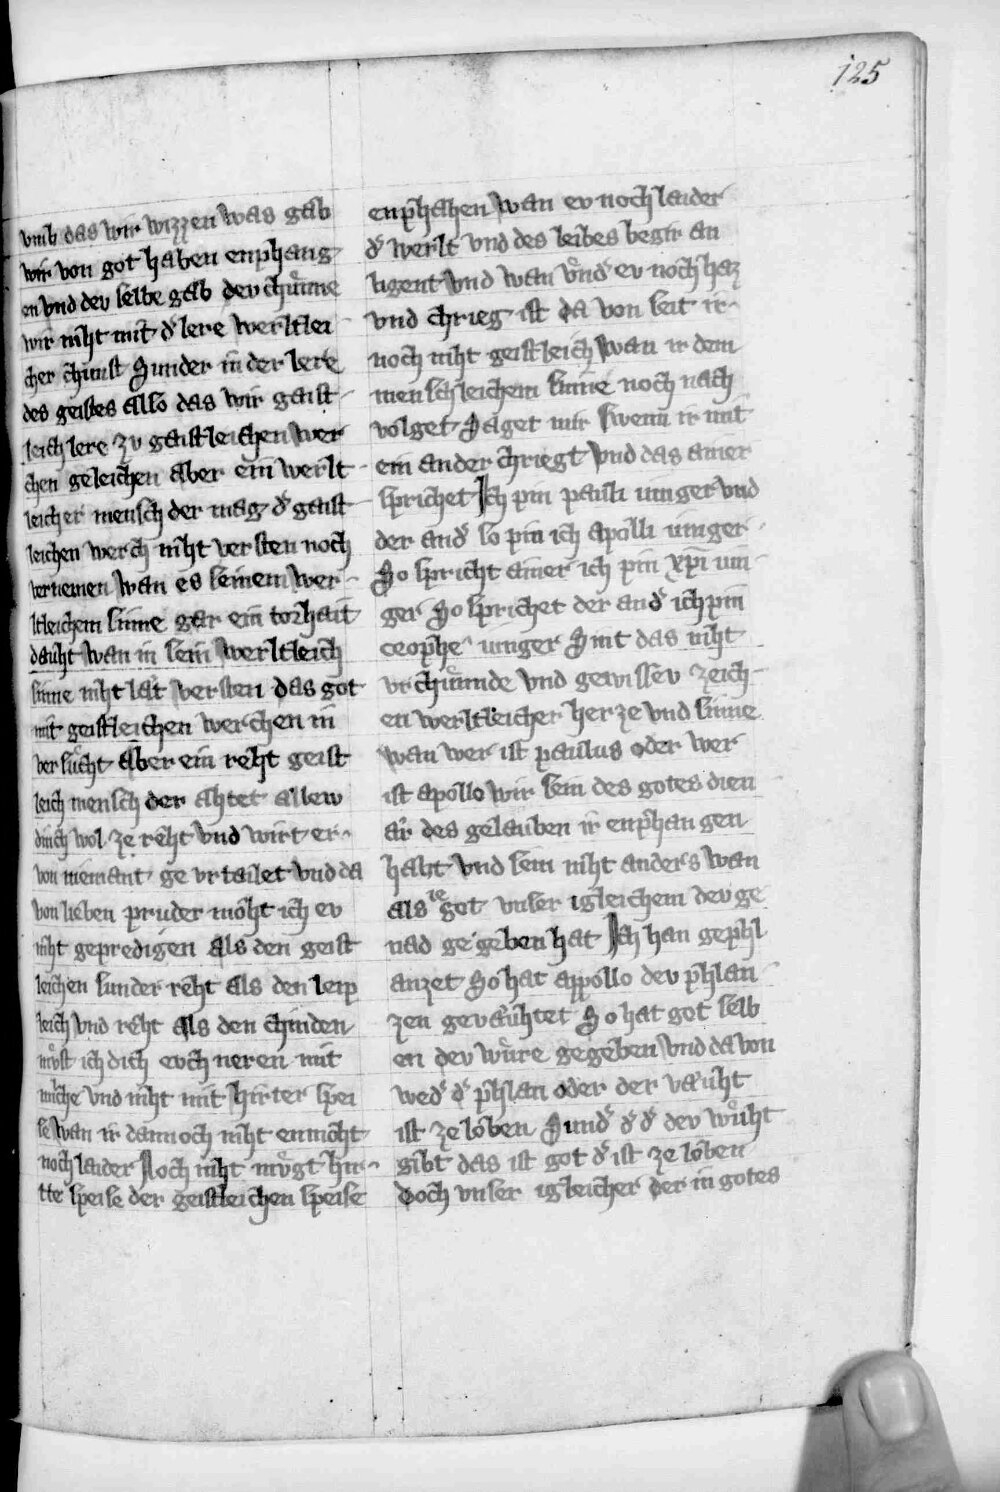 125
vmb das wir wizzen was gab
wir von got haben enphang
en vnd dev selbe gab dev chu̍nne
wir niht mit d̍ lere werltlei
cher chunst Sunder in der lere
des geistes also das wir gaist
leich lere zv gaistleichen wer
chen geleichen aber ein werlt
leicher mensch der mag d̍ gaist
leichen werch niht versten noch
vernemen wan es seinem wer
ltleichem sinne gar ein torhait
dauht wan in sein werltleich
sinne niht lat versten das got
mit geistleichen werchen in
versucht Aber ein reht geist
leich mensch der ahtet allew
dinch wol ze reht vnd wirt er
von niemant ge vrtailet vnd da
von lieben pruder moht ich ev
niht gepredigen als den geist
leichen sunder reht als den leip
leich vnd reht als den chinden
mvͦst ich dich evch neren mit
milche vnd niht mit hirter spei
se wan ir dannoch niht enmoht
noch laider Noch niht mvͤgt hir
tte speise der geistleichen speise
enphahen wan ev noch laider
d̍ werlt vnd des leibes begir an
ligent vnd wan vnd̍ ev noch haz
vnd chrieg ist da von seit ir
noch niht geistleich wan ir dem
menschleichem sinne noch nach
volget Saget mir swenn̄ ir mit
ein ander chriegt vnd das ainer
sprichet Ich pin pauli iunger vnd
der and̍ so pin ich apolli iunger
So spricht ainer ich pin xp̄i iun
ger So sprichet der and̍ ich pin
ceophe iunger Sint das niht
vrchu̍nde vnd gewissev zeich
en werltleicher herze vnd sinne
wan wer ist paulus oder wer
ist apollo wir sein des gotes dien
ar des gelauben ir enphangen
habt vnd sein niht anders wan
als ie got vnser igleichem dev ge
nad gegeben hat Ich han gephl
anzet So hat appollo dev phlan
zen gevæuhtet So hat got selb
en dev wu̍re gegeben vnd da von
wed̍ d̍ phlan oder der væuht
ist ze loben Sund̍ d̍ d̍ dev wuͦht
gibt das ist got d̍ ist ze loben
Doch vnser igleicher der in gotes